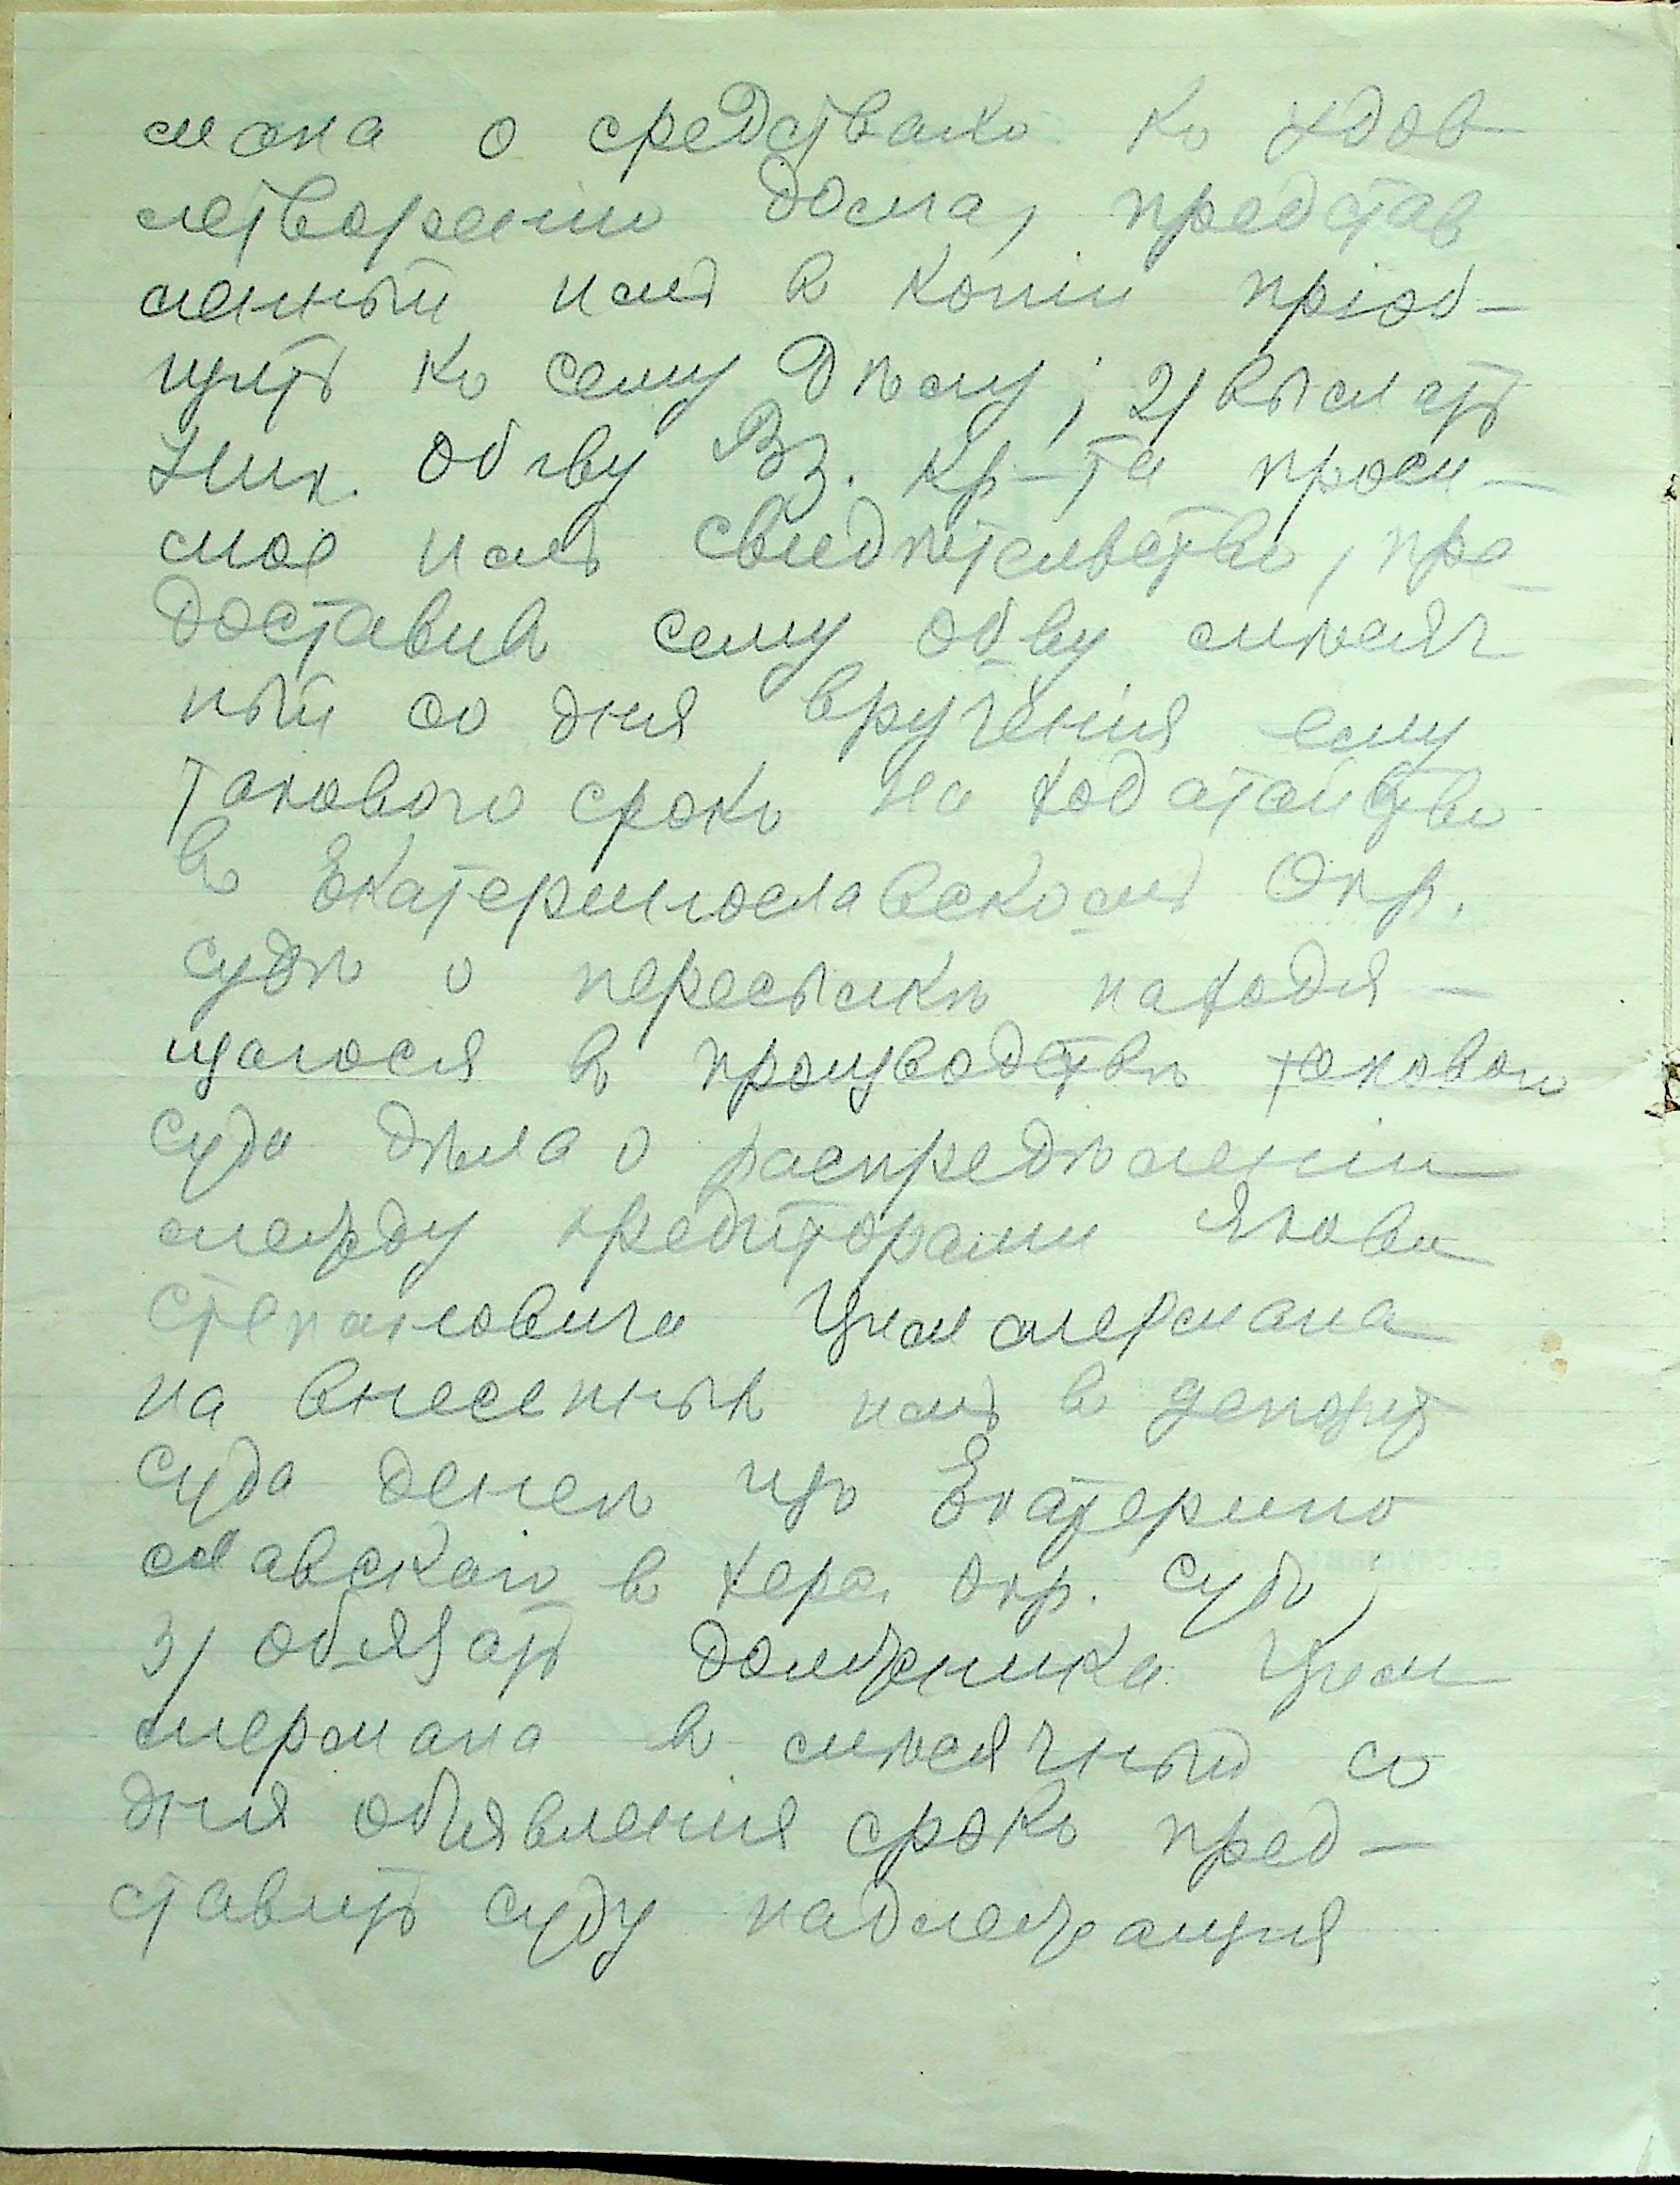 мана о средствахъ къ удов
летворенію долга, представ
ленный имъ въ копіи пріоб-
щить къ сему дѣлу; 2) выслать
Ник. Об-ву Вз. Кр-та проси-
мое имъ свидѣтельство, пре-
доставивъ сему об-ву мѣсяч
ный со дня врученія ему
такового срокъ на ходатайство
въ Екатеринославскомъ Окр.
судѣ о пересылкѣ находя-
щагося въ производствѣ такового
суда дѣла о распредѣленіи
между кредиторами Якова
Степановича Циммермана
на внесенныхъ имъ въ депозитъ
суда денегъ изъ Екатерино
славскаго в Херс. Окр. Судъ;
3) обязать должника Цим
мермана въ мѣсячный со
дня объявленія срокъ пред-
ставить суду надлежащія